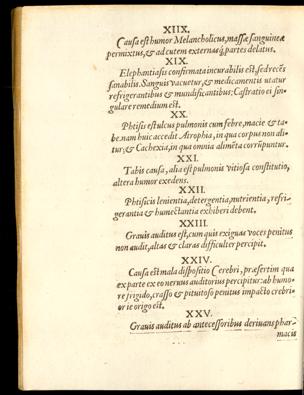 XIIX.
Causa est humor Melancholicus, massæ sanguineæ
permixtus, & ad cutem externasq; partes delatus.
XIX.
Elephantiasis confirmata incurabilis est, sed recēs
sanabilis. Sanguis vacuetur, & medicamentis utatur
refrigerantibus & mundificantibus; Castratio ei sin-
gulare remedium est.
XX.
Phtisis est ulcus pulmonis cum febre, macie & ta-
be. nam huic accedit Atrophia, in qua corpus non ali-
tur; & Cachexia, in qua omnia alimēta corrūpuntur.
XXI.
Tabis causa, alia est pulmonis vitiosa constitutio,
altera humor exedens.
XXII.
Phtisicis lenientia, detergentia, nutrientia, refri-
gerantia & humectantia exhiberi debent.
XXIII.
Gravis auditus est, cum quis exiguas voces penitus
non audit, altas & claras difficulter percipit.
XXIV.
Causa est mala dispositio Cerebri, præsertim qua
ex parte ex eo nervus auditorius percipitur: ab humo-
re frigido, crasso & pituitoso penitus impacto crebri-
or ie origo est.
XXV.
Gravis auditus ab antecessoribus derivans phar-
macis